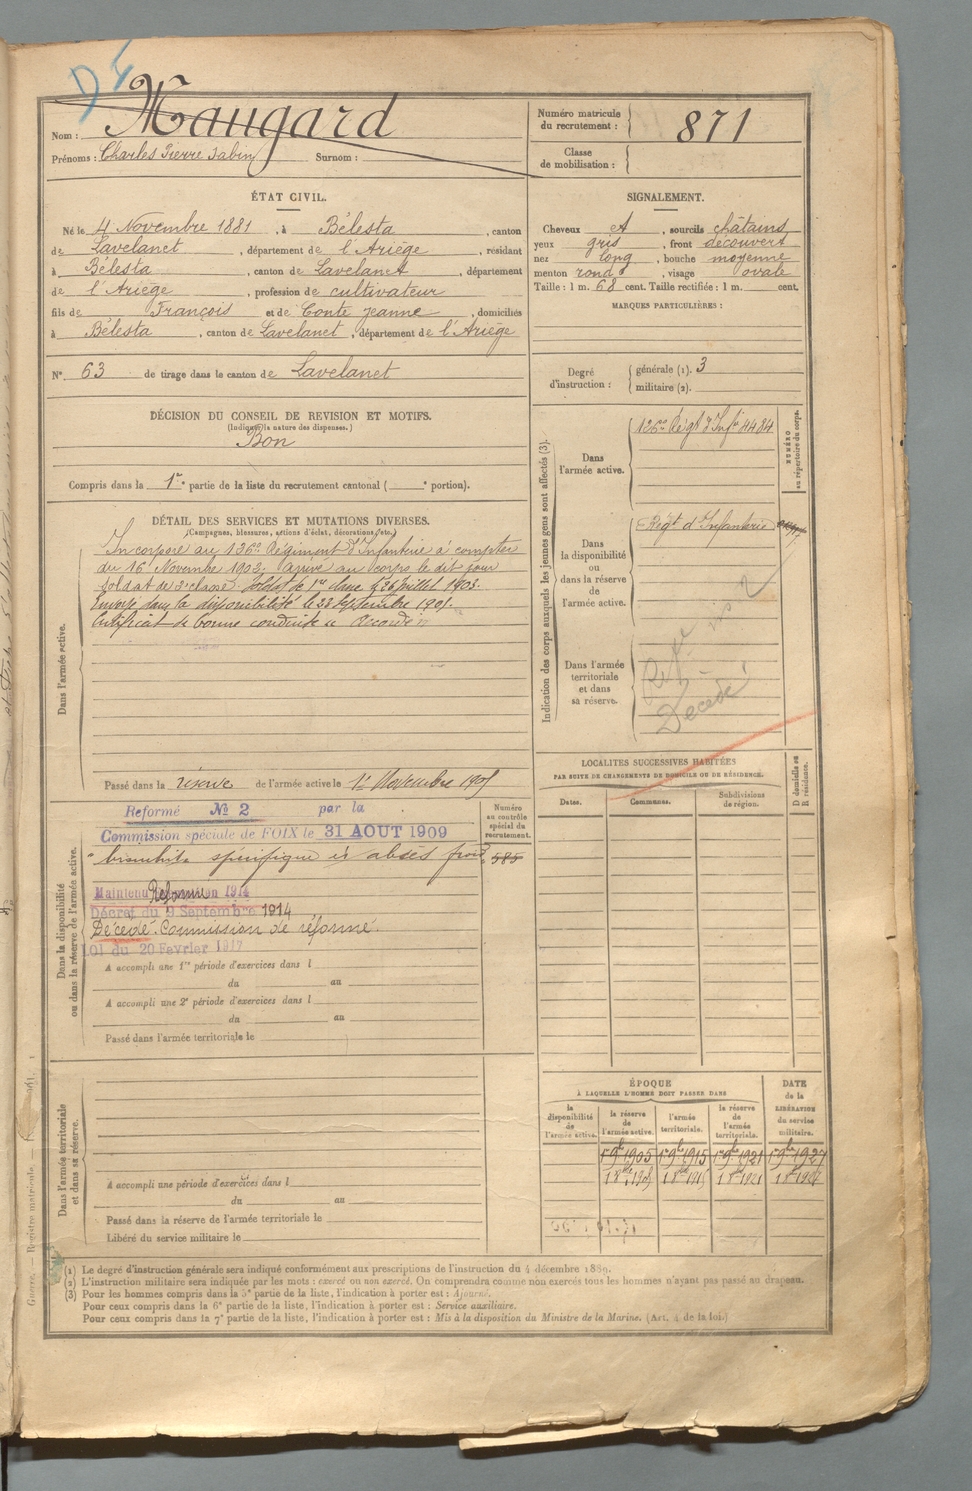 D 4
Nom : Maugard
Prénoms : Charles Pierre Sabin Surnom :
Numéro matricule du recrutement : 871
Classe de mobilisation :
ÉTAT CIVIL.
Né le 4 Novembre 1881, à Bélesta, canton
de Lavelanet, département de l'Ariège, résidant
à Bélesta, canton de Lavelanet, département
de l'Ariège, profession de cultivateur
fils de François et de Conte Jeanne, domiciliés
à Bélesta, canton de Lavelanet, département de l'Ariège
N° 63 de tirage dans le canton de Lavelanet
SIGNALEMENT.
Cheveux et, sourcils châtains
yeux gris, front découvert
nez long, bouche moyenne
menton rond, visage ovale
Taille : 1 m. 68 cent. Taille rectifiée : 1 m. cent.
MARQUES PARTICULIÈRES :
Degré d'instruction : générale (1). 3
militaire (2).
DÉCISION DU CONSEIL DE REVISION ET MOTIFS.
(Indiquer la nature des dispenses.)
Bon
Compris dans la 1re partie de la liste du recrutement cantonal ( e portion).
DÉTAIL DES SERVICES ET MUTATIONS DIVERSES.
(Campagnes, blessures, actions d'éclat, décorations, etc.)
Dans l'armée active.
Incorporé au 126e Régiment d'Infanterie à compter
du 16 Novembre 1902, arrivé au corps le dit jour
soldat de 2e classe. Soldat de 1re classe le 26 juillet 1903.
Envoyé dans la disponibilité le 23 septembre 1905.
Certificat de bonne conduite accordé
Passé dans la réserve de l'armée active le 1er Novembre 1905
Indication des corps auxquels les jeunes gens sont affectés (3).
NUMÉRO au répertoire du corps.
Dans l'armée active.
126e Régt d'Infie 4484
Dans la disponibilité ou dans la réserve de l'armée active.
Régt d'Infanterie
Dans l'armée territoriale et dans sa réserve.
Réfé no 2
Décédé
LOCALITÉS SUCCESSIVES HABITÉES
PAR SUITE DE CHANGEMENTS DE DOMICILE OU DE RÉSIDENCE.
Dates. Communes. Subdivisions de région. D domicile ou R résidence.
Dans la disponibilité ou dans la réserve de l'armée active.
Numéro au contrôle spécial du recrutement.
585
Reformé No 2 par la
Commission spéciale de FOIX le 31 AOUT 1909
bronchite spécifique et abcès froid
Maintenu Réformé 1914
Décret du 9 Septembre 1914
Décédé. Commission de réforme.
Loi du 20 Fevrier 1917
A accompli une 1re période d'exercices dans l
du au
A accompli une 2e période d'exercices dans l
du au
Passé dans l'armée territoriale le
Dans l'armée territoriale et dans sa réserve.
A accompli une période d'exercices dans l
du au
Passé dans la réserve de l'armée territoriale le
Libéré du service militaire le
ÉPOQUE
À LAQUELLE L'HOMME DOIT PASSER DANS
la disponibilité de l'armée active. la réserve de l'armée active. l'armée territoriale. la réserve de l'armée territoriale. DATE de la LIBÉRATION du service militaire.
1er 9bre 1905 1er 9bre 1915 1er 9bre 1921 1er 9bre 1927
(1) Le degré d'instruction générale sera indiqué conformément aux prescriptions de l'instruction du 4 décembre 1889.
(2) L'instruction militaire sera indiquée par les mots : exercé ou non exercé. On comprendra comme non exercés tous les hommes n'ayant pas passé au drapeau.
(3) Pour les hommes compris dans la 5e partie de la liste, l'indication à porter est : Ajourné.
Pour ceux compris dans la 6e partie de la liste, l'indication à porter est : Service auxiliaire.
Pour ceux compris dans la 7e partie de la liste, l'indication à porter est : Mis à la disposition du Ministre de la Marine. (Art. 4 de la loi.)
Guerre. — Registre matricule. —